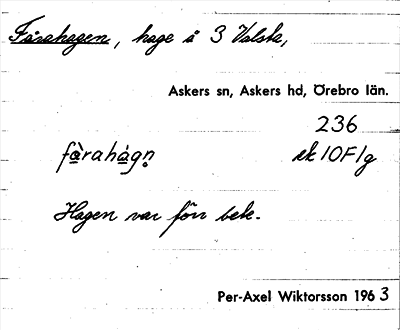 Fårahagen, hage å 3 Valsta,
Askers sn, Askers hd, Örebro län.
236
få̀rahágn̥ ek 10F1g
Hagen var förr bete.
Per-Axel Wiktorsson 1963